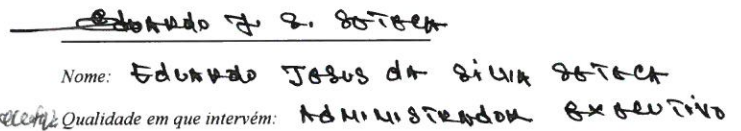 Eduardo J. S. Soteca
Nome: Eduardo Jesus da Silva Soteca
Qualidade em que intervém: Administrador Executivo